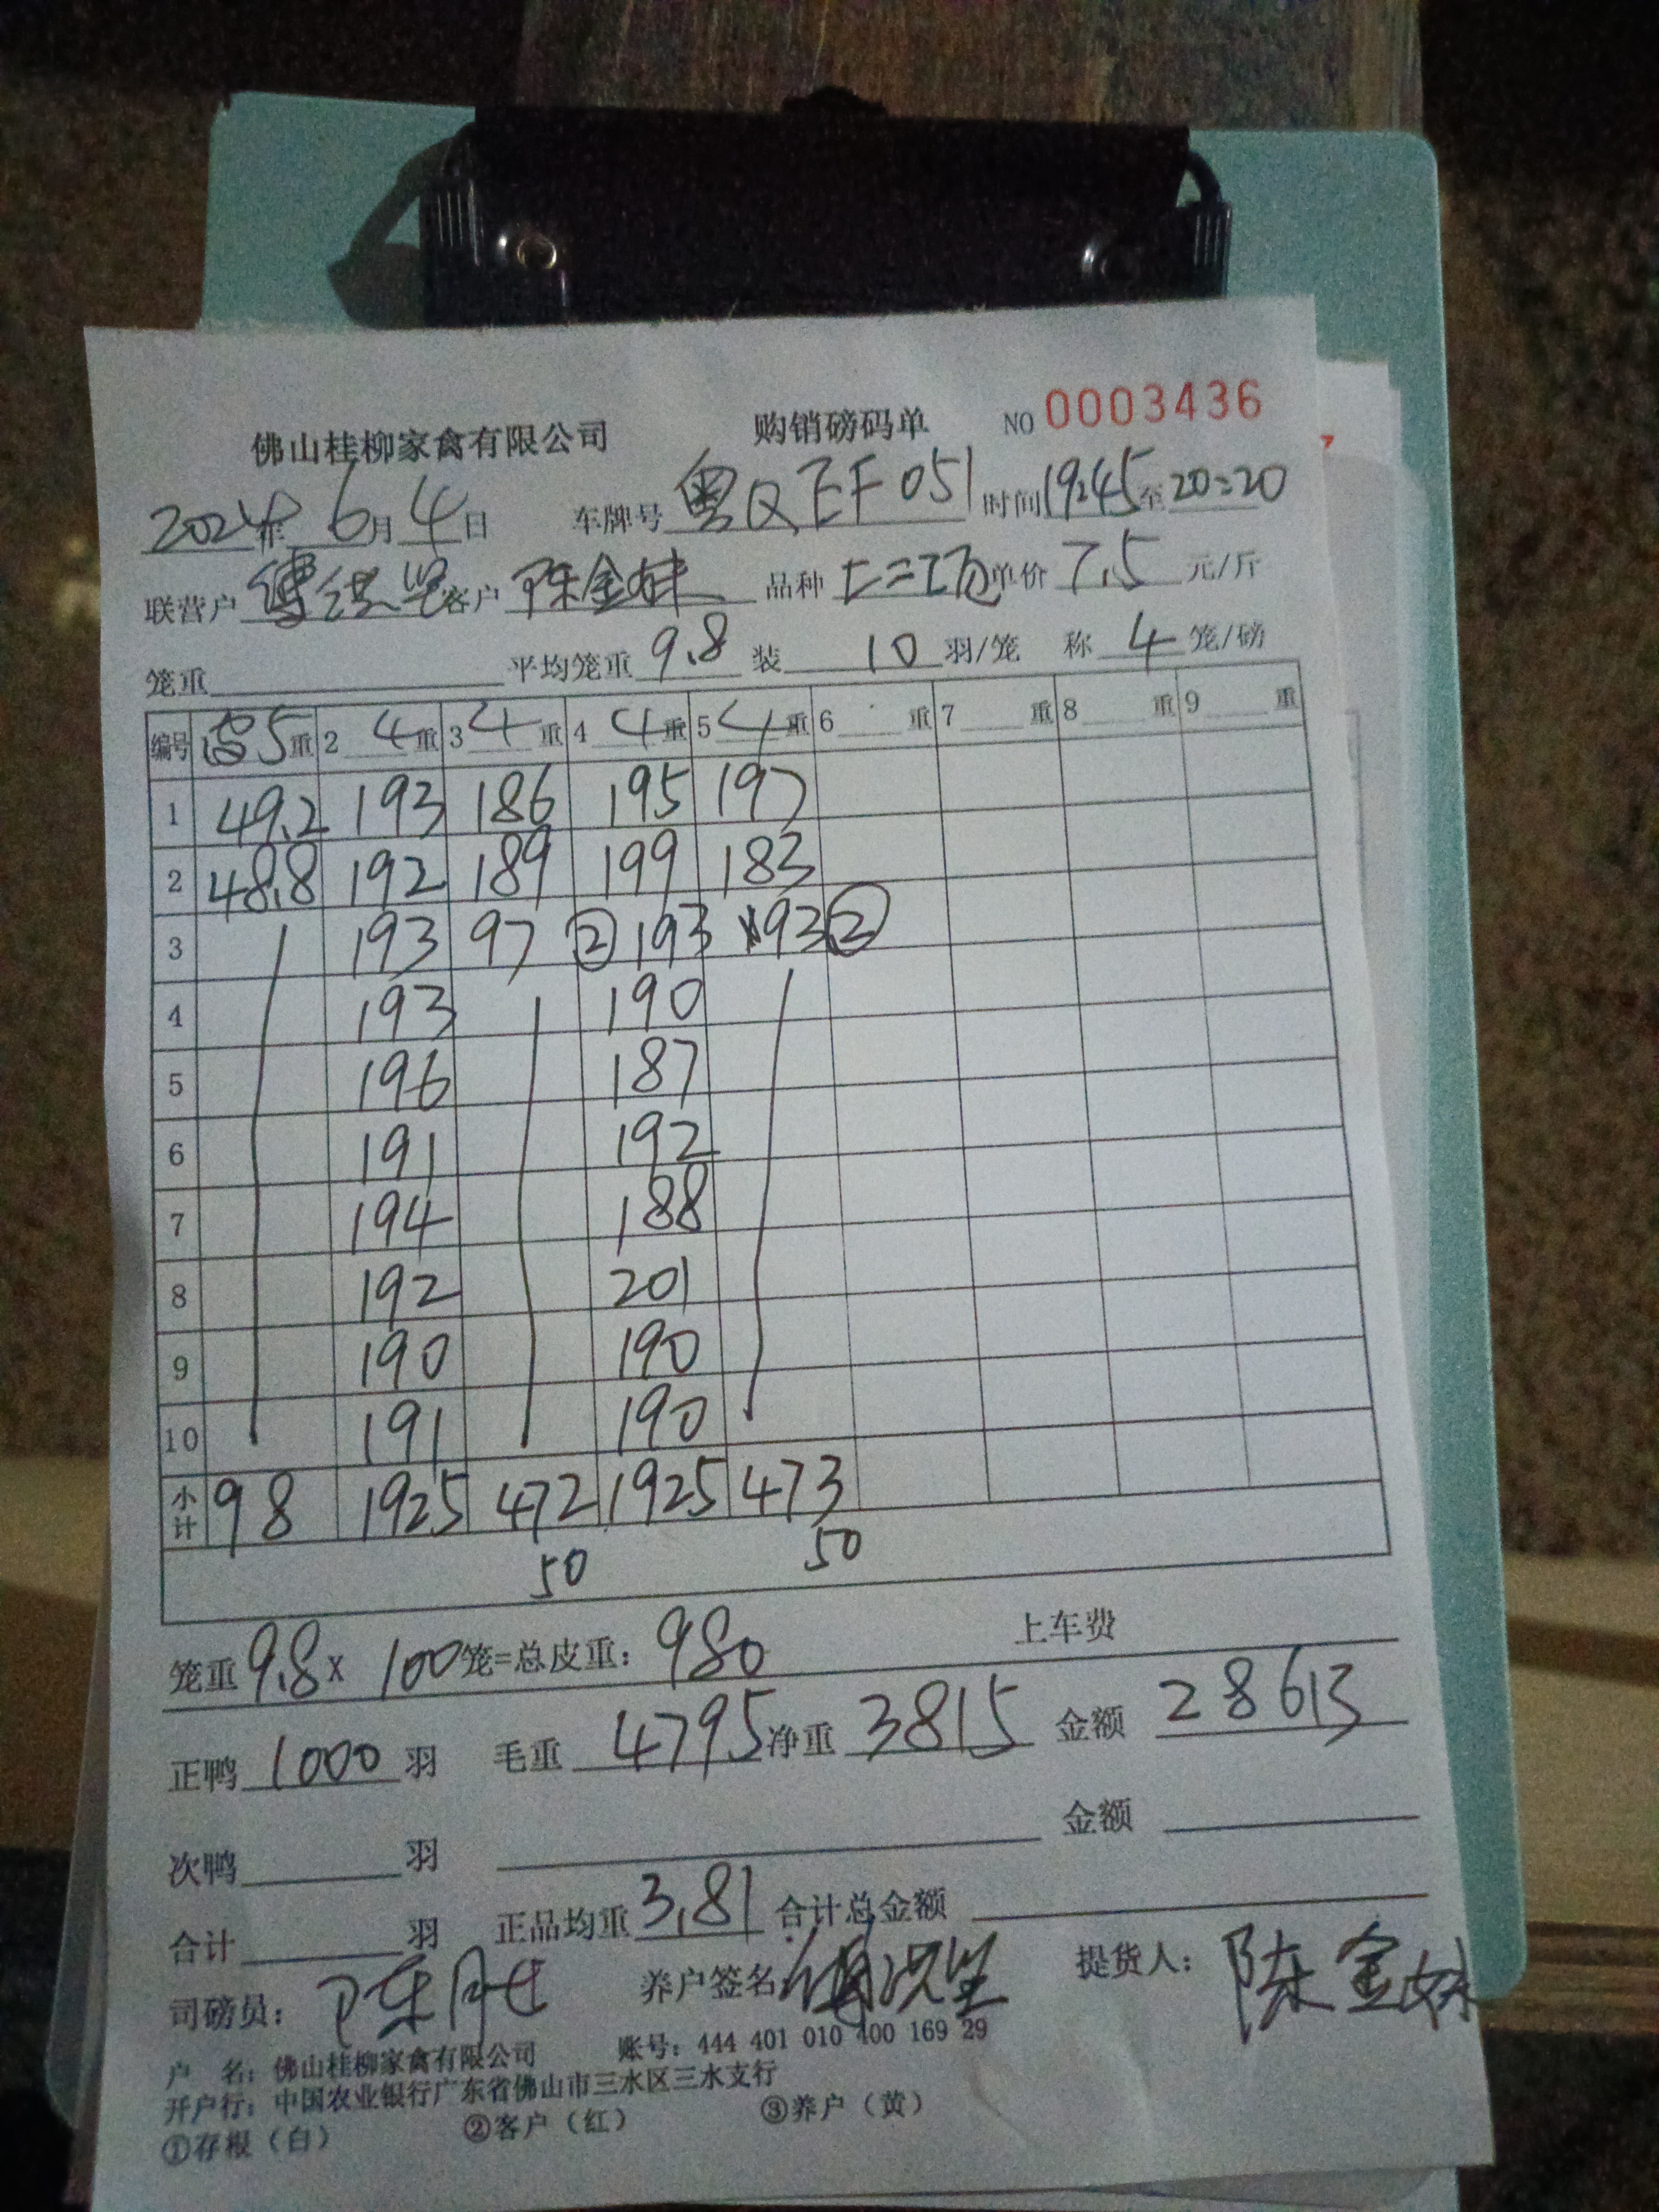 佛山桂柳家禽有限公司 购销磅码单 NO 0003436
2024年 6月 4日 车牌号 粤Q EF051 时间 19:45 至 20:20
联营户 客户 陈金妹 品种 单价 7.5 元/斤
笼重 平均笼重 9.8 装 10 羽/笼 称 4 笼/磅
编号 5重 2 4重 3 4重 4 4重 5 4重 6 重 7 重 8 重 9 重
1 49.2 193 186 195 197
2 48.8 192 189 199 183
3 193 97 ② 193 93 ②
4 193 190
5 196 187
6 191 192
7 194 188
8 192 201
9 190 190
10 191 190
小计 98 1925 472 1925 473
50 50
笼重 9.8 X 100 笼=总皮重: 980 上车费
正鸭 1000 羽 毛重 4795 净重 3815 金额 28613
次鸭 羽 金额
合计 羽 正品均重 3.81 合计总金额
司磅员: 陈胜 养户签名: 提货人: 陈金妹
户 名: 佛山桂柳家禽有限公司 账号: 444 401 010 400 169 29
开户行: 中国农业银行广东省佛山市三水区三水支行
①存根(白) ②客户(红) ③养户(黄)